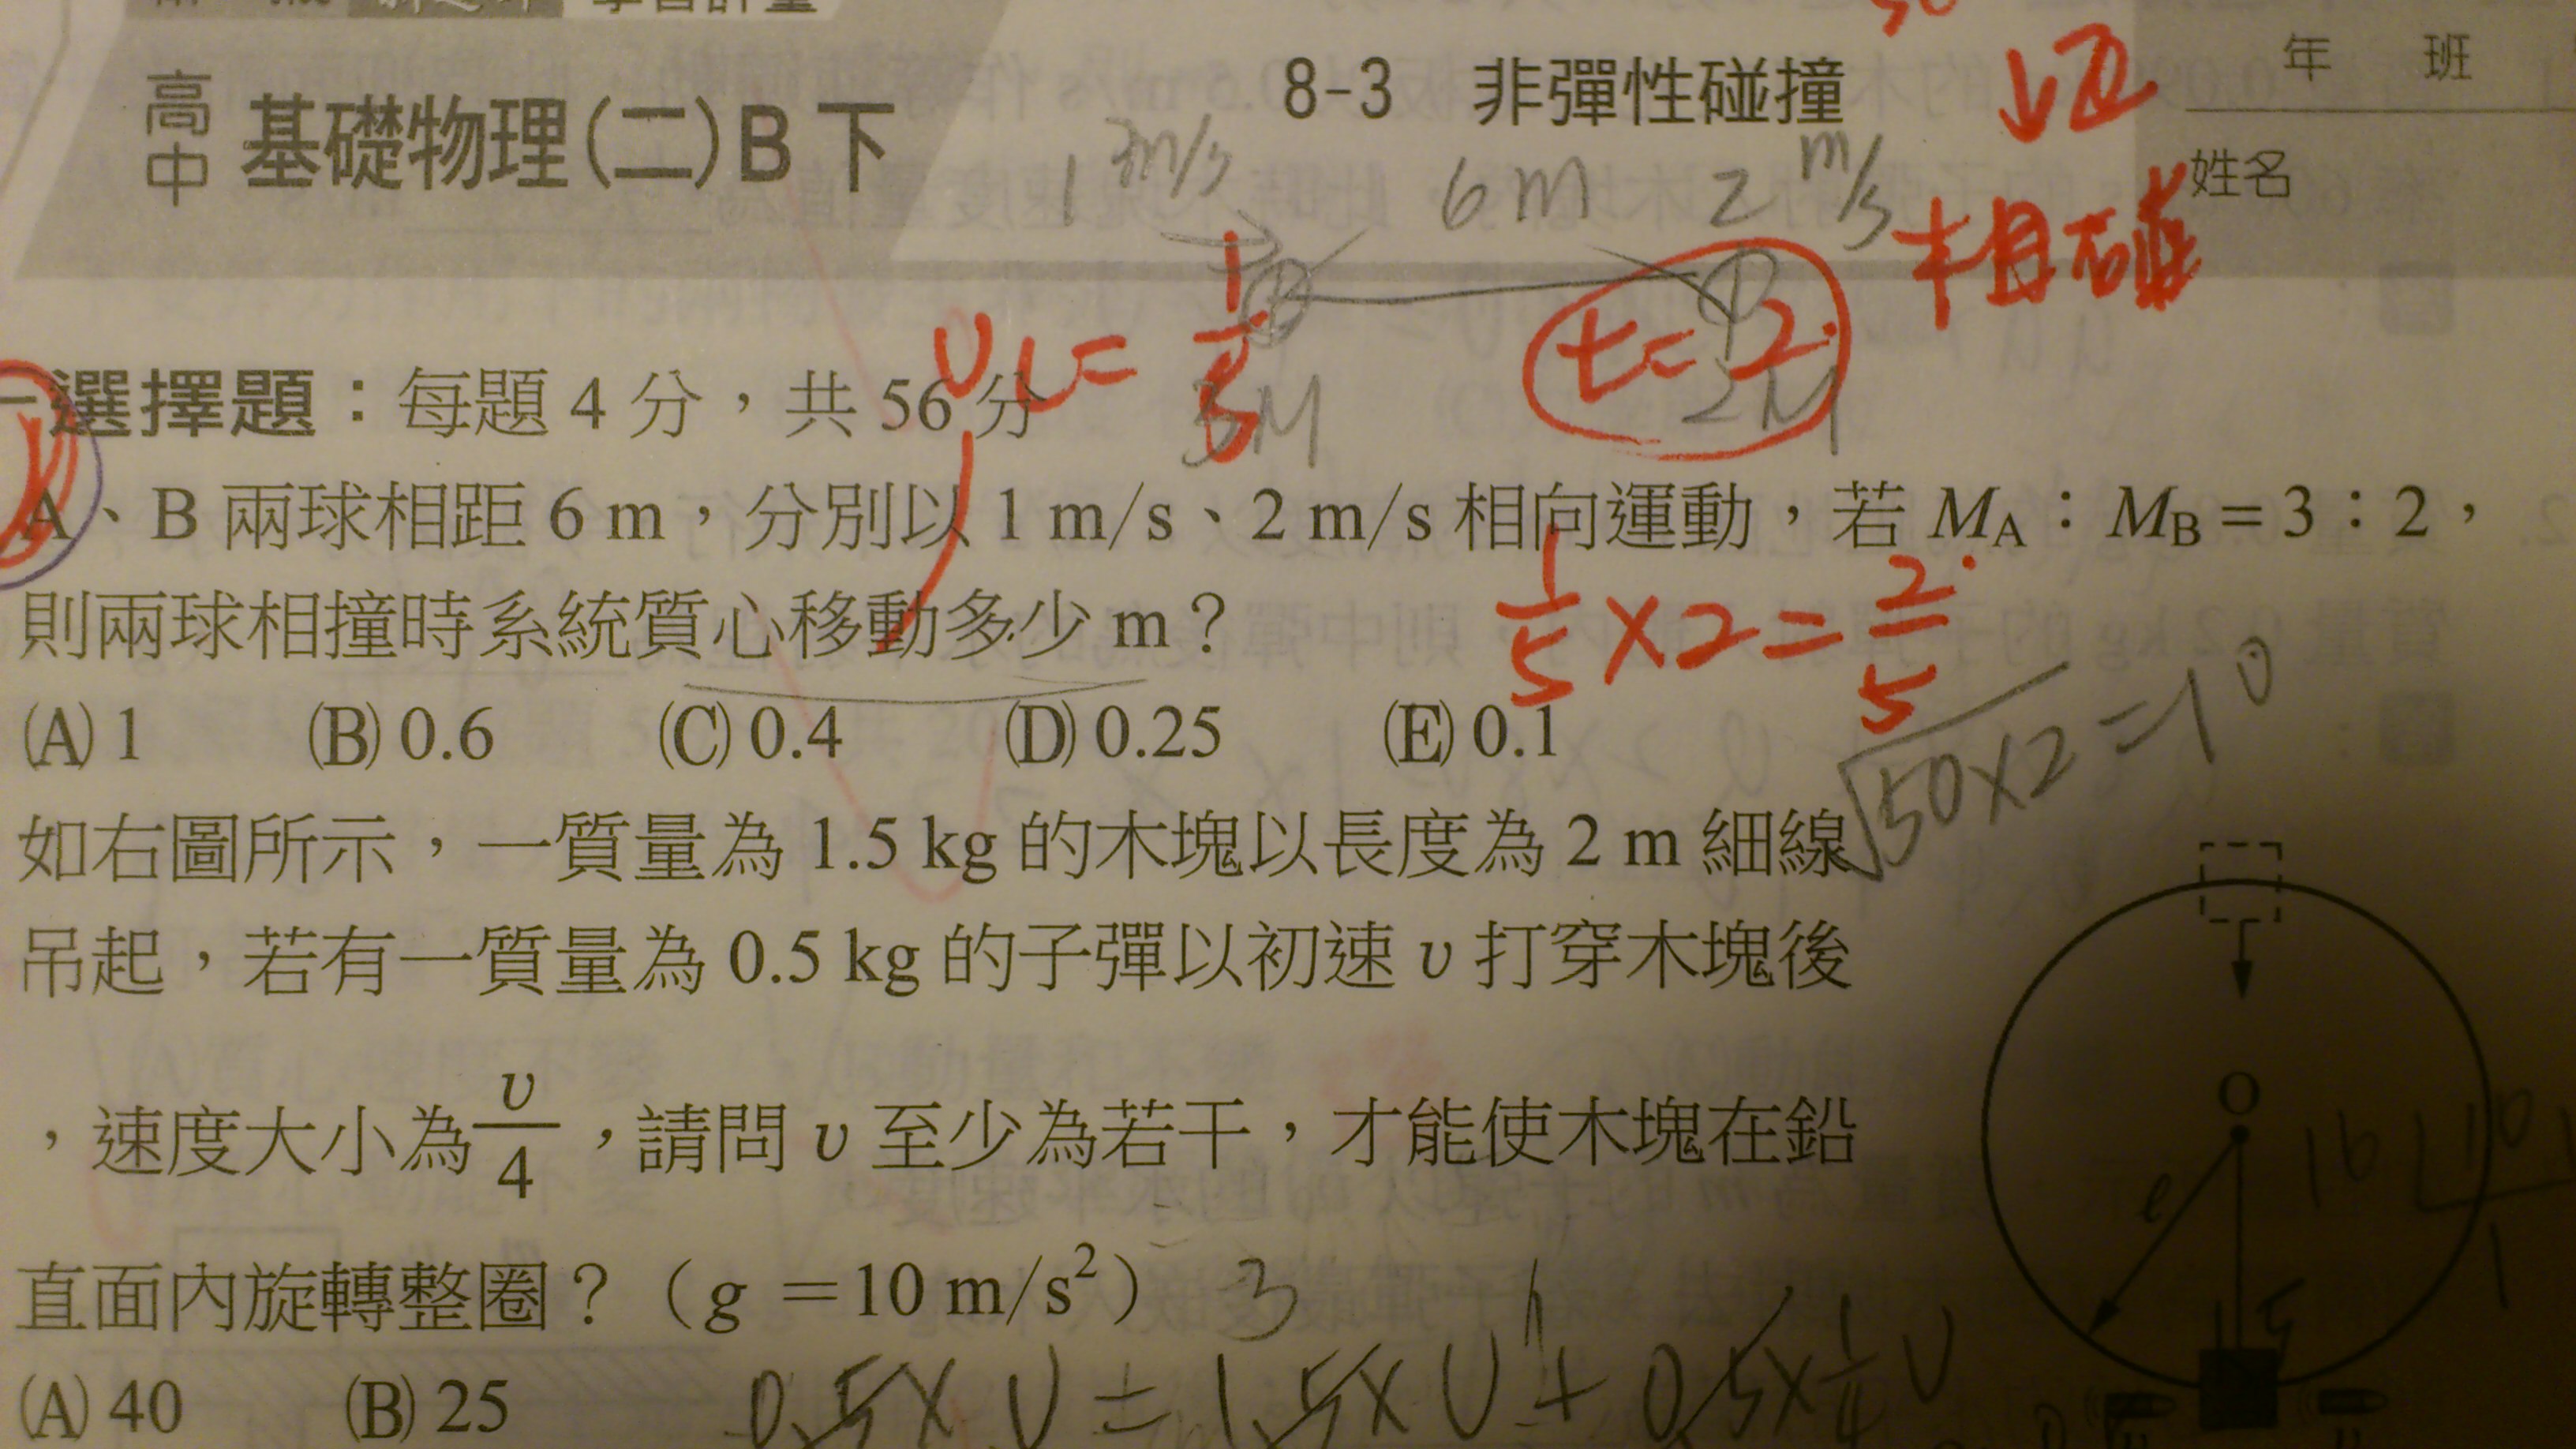 學習評量
高中 基礎物理(二)B 下
8-3 非彈性碰撞
年 班
姓名
1 m/s 6 m 2 m/s
相碰
υc = 1/5
t = 2
3M
2M
選擇題：每題 4 分，共 56 分
A、B 兩球相距 6 m，分別以 1 m/s、2 m/s 相向運動，若 MA：MB = 3：2，
則兩球相撞時系統質心移動多少 m？
1/5 × 2 = 2/5
(A) 1 (B) 0.6 (C) 0.4 (D) 0.25 (E) 0.1
√50×2 = 10
如右圖所示，一質量為 1.5 kg 的木塊以長度為 2 m 細線
吊起，若有一質量為 0.5 kg 的子彈以初速 υ 打穿木塊後
，速度大小為 υ/4，請問 υ 至少為若干，才能使木塊在鉛
直面內旋轉整圈？（g = 10 m/s²）
O
ℓ
3
(A) 40 (B) 25
0.5 × υ = 1.5 × υ' + 0.5 × 1/4 υ